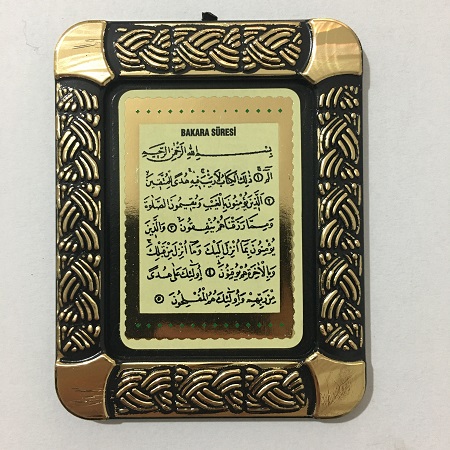 BAKARA SÛRESİ
بِسْمِ اللهِ الرَّحْمٰنِ الرَّحِيمِ
الٓمٓ ۝١ ذٰلِكَ الْكِتَابُ لَارَيْبَ فِيهِ هُدًى لِلْمُتَّقِينَ
۝٢ اَلَّذِينَ يُؤْمِنُونَ بِالْغَيْبِ وَيُقِيمُونَ الصَّلٰوةَ
وَمِمَّا رَزَقْنَاهُمْ يُنْفِقُونَ ۝٣ وَالَّذِينَ
يُؤْمِنُونَ بِمَا اُنْزِلَ اِلَيْكَ وَمَا اُنْزِلَ مِنْ قَبْلِكَ
وَبِالْاٰخِرَةِ هُمْ يُوقِنُونَ ۝٤ اُولٰئِكَ عَلٰى هُدًى
مِنْ رَبِّهِمْ وَاُولٰئِكَ هُمُ الْمُفْلِحُونَ ۝٥